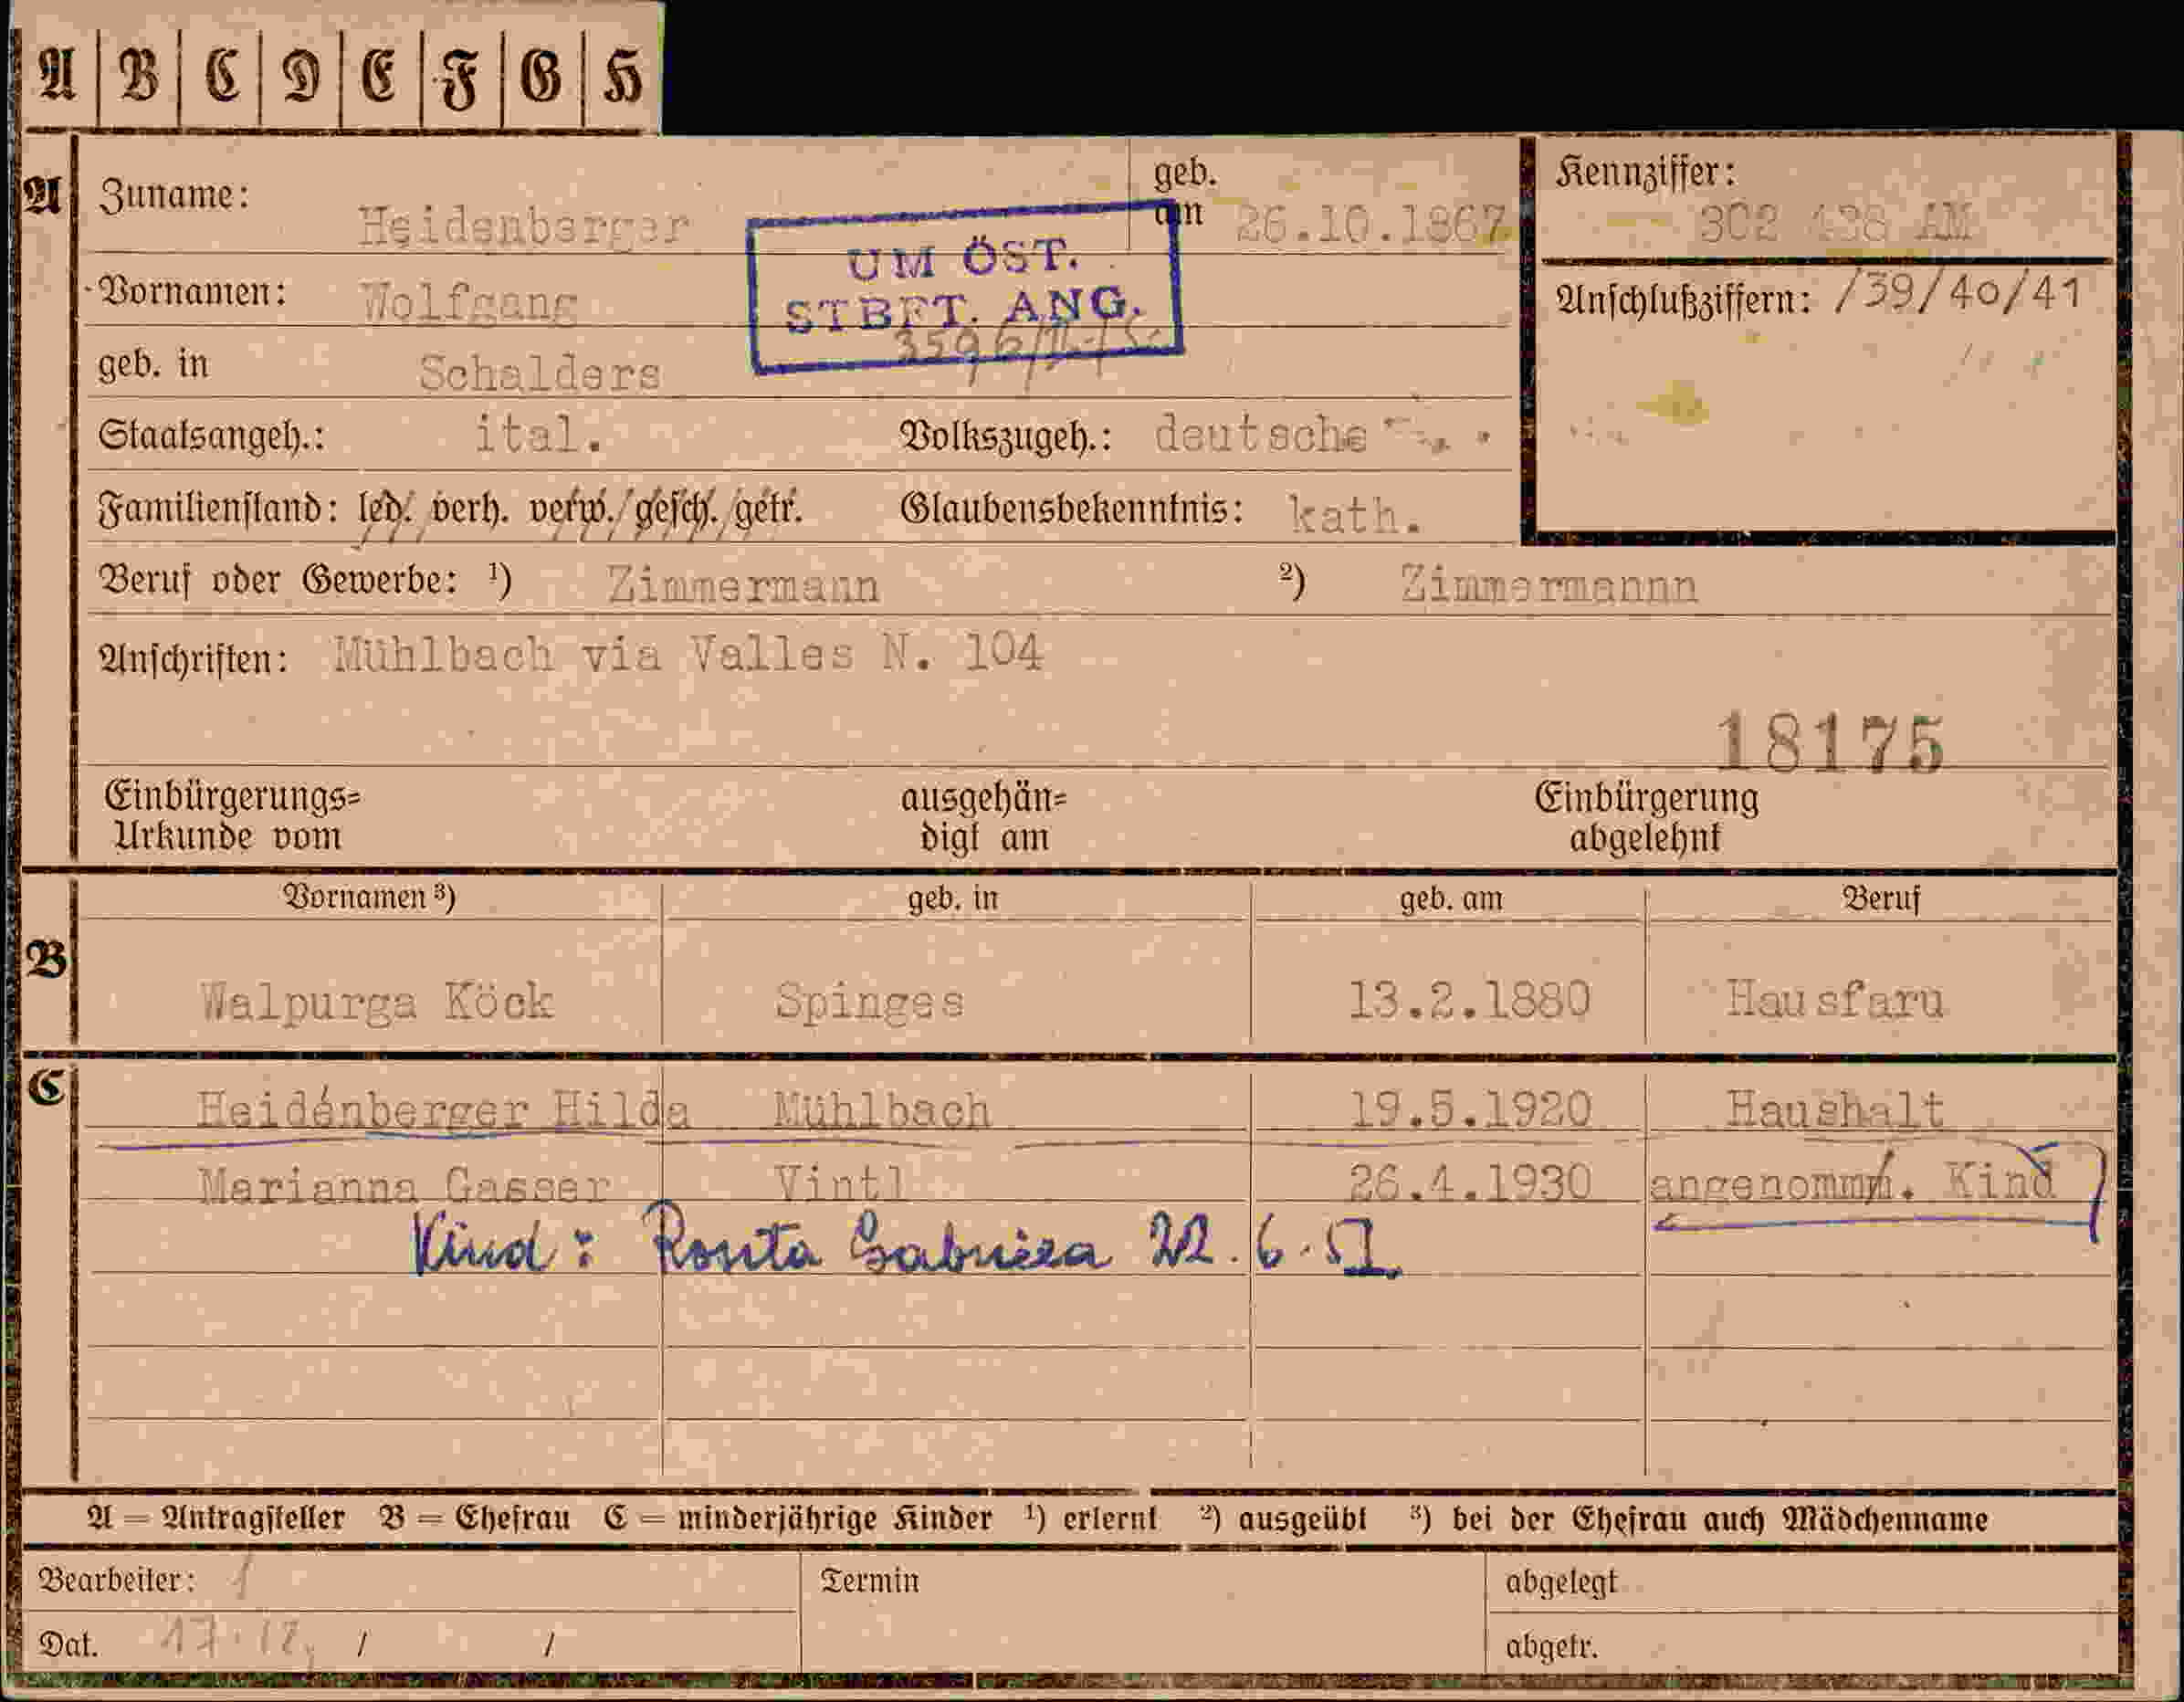 A B C D E F G H
A Zuname: Heidenberger geb. am 26.10.1867
Kennziffer: 302 438 AM
UM ÖST.
STBFT. ANG.
Vornamen: Wolfgang
Anschlußziffern: /39/40/41
geb. in Schalders
Staatsangeh.: ital. Volkszugeh.: deutsche
Familienstand: led. verh. verw. gesch. getr. Glaubensbekenntnis: kath.
Beruf oder Gewerbe: ¹) Zimmermann ²) Zimmermannn
Anschriften: Mühlbach via Valles N. 104
18175
Einbürgerungs= ausgehän= Einbürgerung
Urkunde vom digt am abgelehnt
Vornamen ³) geb. in geb. am Beruf
B Walpurga Köck Spinges 13.2.1880 Hausfaru
C Heidenberger Hilda Mühlbach 19.5.1920 Haushalt
Marianna Gasser Vintl 26.4.1930 angenomm. Kind
Kind: Rosita 22.6.51
A = Antragsteller B = Ehefrau C = minderjährige Kinder ¹) erlernt ²) ausgeübt ³) bei der Ehefrau auch Mädchenname
Bearbeiter: Termin abgelegt
Dat. 17.12. / / abgetr.